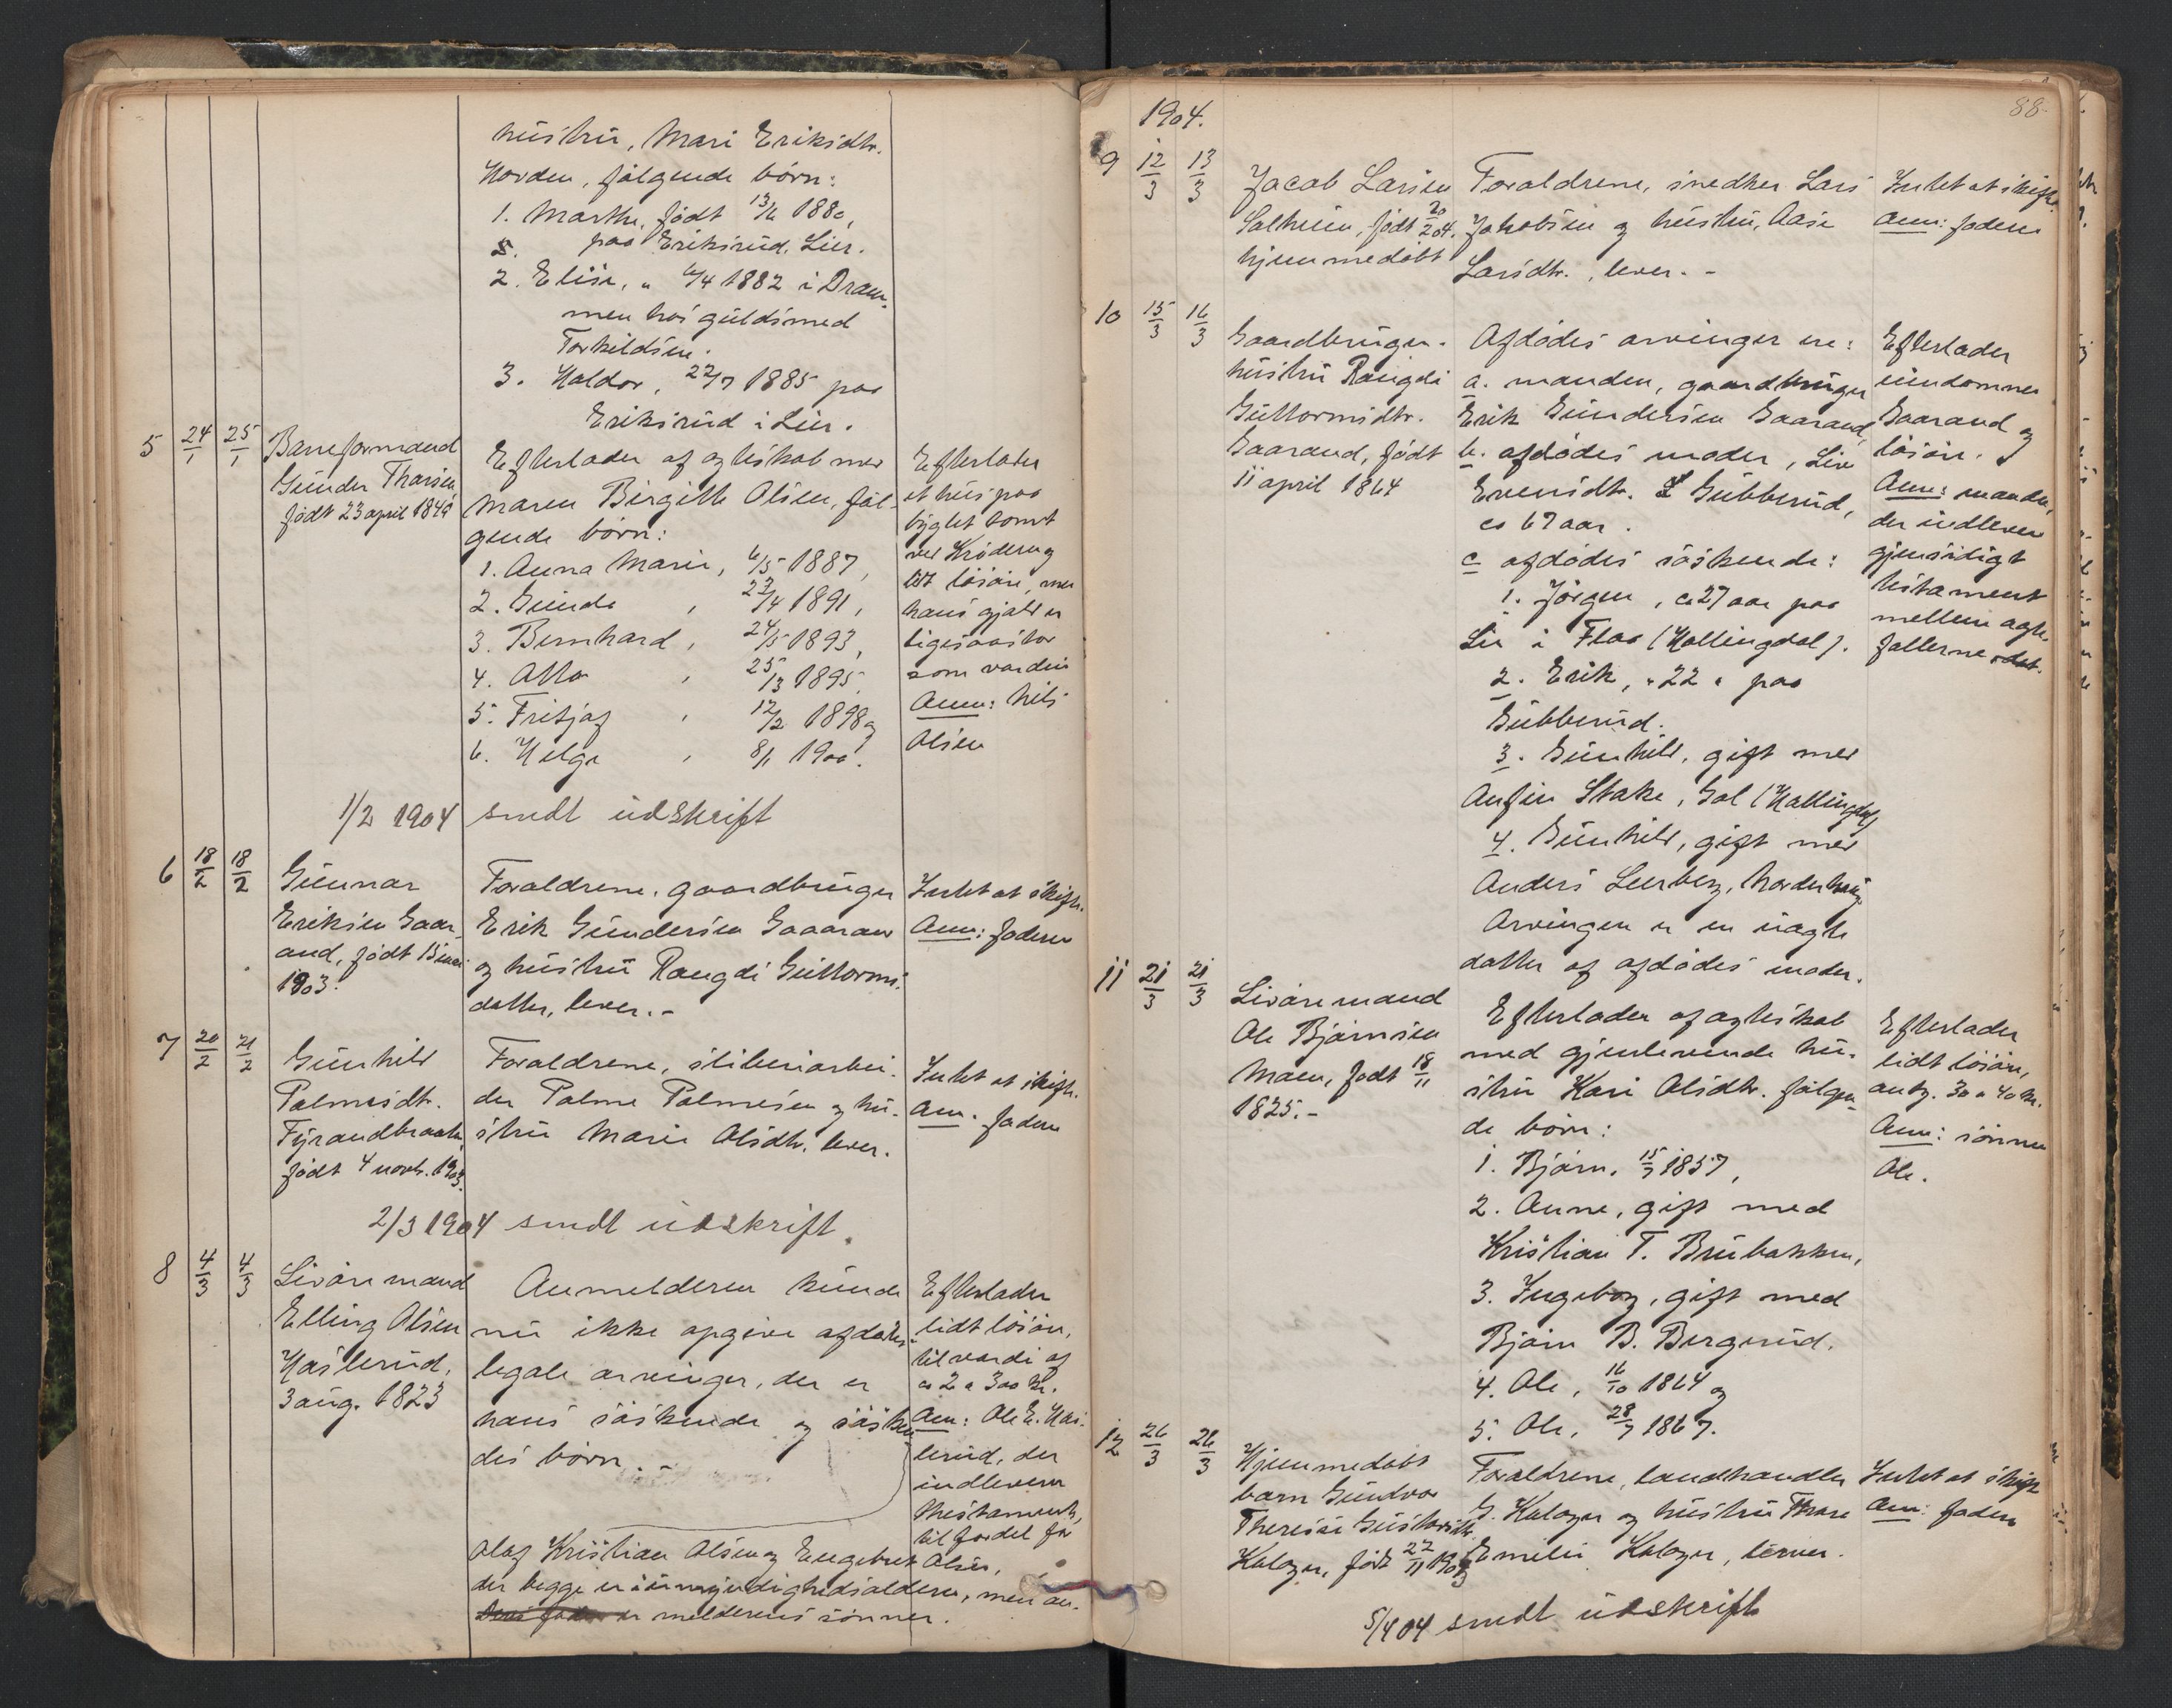 hustru, Mari Eriksdtr.
Horden, følgende børn:
1. Marthe, født 1880,
paa Eriksrud, Lier.
2. Elise, " 6/4 1882 i Dram-
men hos guldsmed
Torkildsen.
3. Haldor, 22/7 1885 paa
Eriksrud i Lier.
5 24/1 25/1 Barneformand
Gunder Tharsen
født 23 april 1840
Efterlader af ægteskab med
Maren Birgitte Olsen, føl-
gende børn:
1. Anna Marie, 6/5 1887,
2. Gunda , 27/4 1891,
3. Bernhard , 24/5 1893,
4. Otto , 25/3 1895,
5. Fritjof , 12/2 1898 og
6. Helge , 8/1 1900.
Efterlader
et hus paa
byglet tomt
ved Krøderen og
lidt løsøre, men
hans gjæld er
ligesaa stor
som værdien
Anm: Nils
Olsen
1/2 1904 sendt udskrift
6 18/2 18/2 Gunnar
Eriksen Gaar-
and, født 15
1903.
Forældrene, gaardbruger
Erik Gundersen Gaarand
og hustru Rangdi Guttorms-
datter, lever. -
Intet at skifte.
Anm: faderen
7 20/2 21/2 Gunhild
Palmesdtr.
Fyrandbraaten
født 4 novb. 1903.
Forældrene, sliberiarbei-
der Palme Palmesen og hu-
stru Marie Olsdtr. lever.
Intet at skifte.
Anm. faderen
2/3 1904 sendt udskrift.
8 4/3 4/3 Livøremand
Elling Olsen
Haslerud,
3 aug. 1823
Anmelderen kunde
nu ikke opgive afdødes
legale arvinger, der er
hans søskende og søsken-
des børn. -
Efterlader
lidt løsøre,
til værdi af
ca 2 a 300 kr.
Anm: Ole E. Has-
lerud, der
indleverer
thestamente,
til fordel for
Olaf Kristian Olsen og Engebret Olsen,
der begge er i umyndighedsalderen, men an-
melderens sønner.
88.
1904.
9 12/3 13/3 Jacob Larsen
Solheim, født 20/2 04.
hjemmedøbt
Forældrene, snedker Lars
Jakobsen og hustru, Aase
Larsdtr., lever. -
Intet at skifte.
Anm: faderen
10 15/3 16/3
Gaardbruger-
hustru Rangdi
Guttormsdtr.
Gaarand, født
11 april 1864
Afdødes arvinger er:
a. manden, gaardbruger
Erik Gundersen Gaarand,
b. afdødes moder, Live
Evensdtr. Gubberud,
ca 67 aar.
c afdødes søskende:
1. Jørgen, ca 27 aar paa
Lie i Flaa (Hallingdal).
2. Erik, " 22 " paa
Gubberud.
3. Gunhild, gift med
Anfin Stake, Gol (Hallingdal)
4. Gunhild, gift med
Anders Leerberg, Norderhaug.
Arvingen er en uægte
datter af afdødes moder.
Efterlader
eiendommen
Gaarand og
løsøre.
Anm: manden,
der indleverer
gjensidigt
testament
mellem ægte-
fællerne
11 21/3 21/3
Livøremand
Ole Bjørnsen
Moen, født 18/11
1825. -
Efterlader af ægteskab
med gjenlevende hu-
stru Kari Olsdtr. følgen-
de børn:
1. Bjørn, 15/7 1857,
2. Anne, gift med
Kristian T. Brubakken,
3. Ingeborg, gift med
Bjørn B. Bergerud.
4. Ole, 16/10 1864 og
5. Ole, 28/7 1867.
Efterlader
lidt løsøre,
antg. 30 a 40 kr.
Anm: sønnen
Ole.
12 26/3 26/3
Hjemmedøbt
barn Gundvor
Theresie
Kolozn, født 27/11 1903
Forældrene, landhandler
G. Kolozn og hustru Thora
Emelie Kolozn, lever.
Intet at skifte
Anm: faderen
5/4 04 sendt udskrift